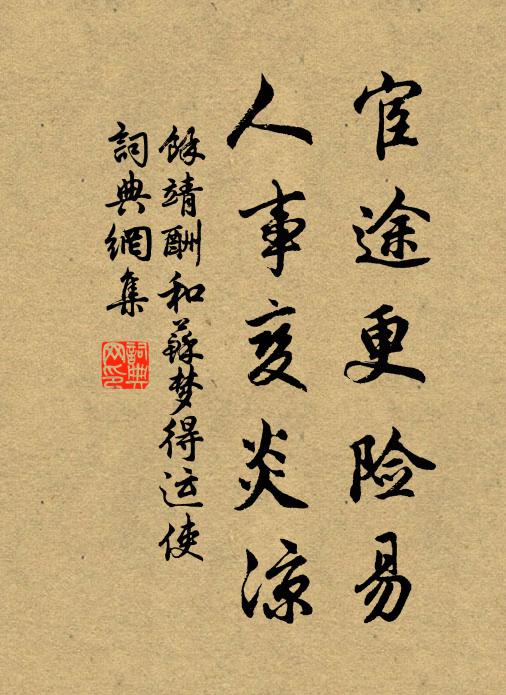 宦途更险易
人事变炎凉
餘靖酬和蘇梦得运使
詞典網集
詞典
网印